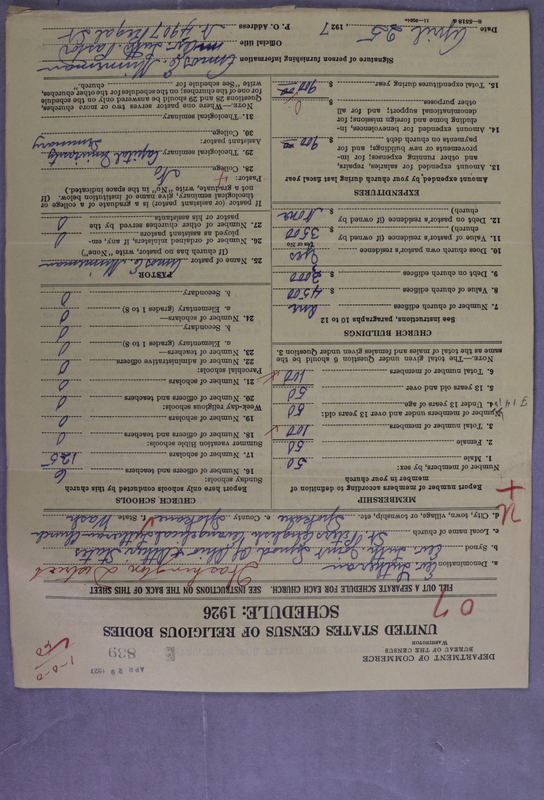 DEPARTMENT OF COMMERCE
BUREAU OF THE CENSUS
WASHINGTON
APR 29 1927
839
1-0-0
UNITED STATES CENSUS OF RELIGIOUS BODIES
SCHEDULE: 1926
07
FILL OUT A SEPARATE SCHEDULE FOR EACH CHURCH. SEE INSTRUCTIONS ON THE BACK OF THIS SHEET
Washington District
a. Denomination Ev. Lutheran
b. Synod Ev. Luth. Joint Synod of Ohio & Other States
c. Local name of church St. Peters English Evangelical Lutheran Church
d. City, town, village, or township, etc. Spokane e. County Spokane f. State Wash.
MEMBERSHIP
Report number of members according to definition of
member in your church
Number of members, by sex:
1. Male 50
2. Female 50
3. Total number of members 100
Number of members under and over 13 years old:
4. Under 13 years of age 50
5. 13 years old and over 50
6. Total number of members 100
NOTE.—The total given under Question 6 should be the
same as the total of males and females given under Question 3.
CHURCH BUILDINGS
See instructions, paragraphs 10 to 12
7. Number of church edifices one
8. Value of church edifices $ 4500
9. Debt on church edifices $ 2000
10. Does church own pastor's residence Yes
(Yes or No)
11. Value of pastor's residence (if owned by
church) $ 3500
12. Debt on pastor's residence (if owned by
church) $ None
EXPENDITURES
Amount expended by your church during last fiscal year
13. Amount expended for salaries, repairs,
and other running expenses; for im-
provements or new buildings; and for
payments on church debt $ 900.00
14. Amount expended for benevolences, in-
cluding home and foreign missions; for
denominational support; and for all
other purposes $
15. Total expenditures during year $ 900.00
CHURCH SCHOOLS
Report here only schools conducted by this church
Sunday schools:
16. Number of officers and teachers 6
17. Number of scholars 125
Summer vacation Bible schools:
18. Number of officers and teachers 0
19. Number of scholars 0
Week-day religious schools:
20. Number of officers and teachers 0
21. Number of scholars 0
Parochial schools:
22. Number of administrative officers 0
23. Number of teachers—
a. Elementary (grades 1 to 8) 0
b. Secondary 0
24. Number of scholars—
a. Elementary (grades 1 to 8) 0
b. Secondary 0
PASTOR
25. Name of pastor Amos E. Minneman
(If church has no pastor, write "None")
26. Number of ordained ministers, if any, em-
ployed as assistant pastors 0
27. Number of other churches served by the
pastor or his assistants 0
If pastor (or assistant pastor) is a graduate of a college or
theological seminary, give name of institution below. (If
not a graduate, write "No" in the space indicated.)
Pastor:
28. College No
29. Theological seminary Capital University
Seminary
Assistant pastor:
30. College
31. Theological seminary
NOTE.—Where one pastor serves two or more churches,
Questions 28 and 29 should be answered only on the schedule
for one of the churches; on the schedules for the other churches,
write "See schedule for church."
Signature of person furnishing information Amos E. Minneman
Official title Luth. Pastor
P. O. Address N. 4907 Regal St
Date April 25, 1927